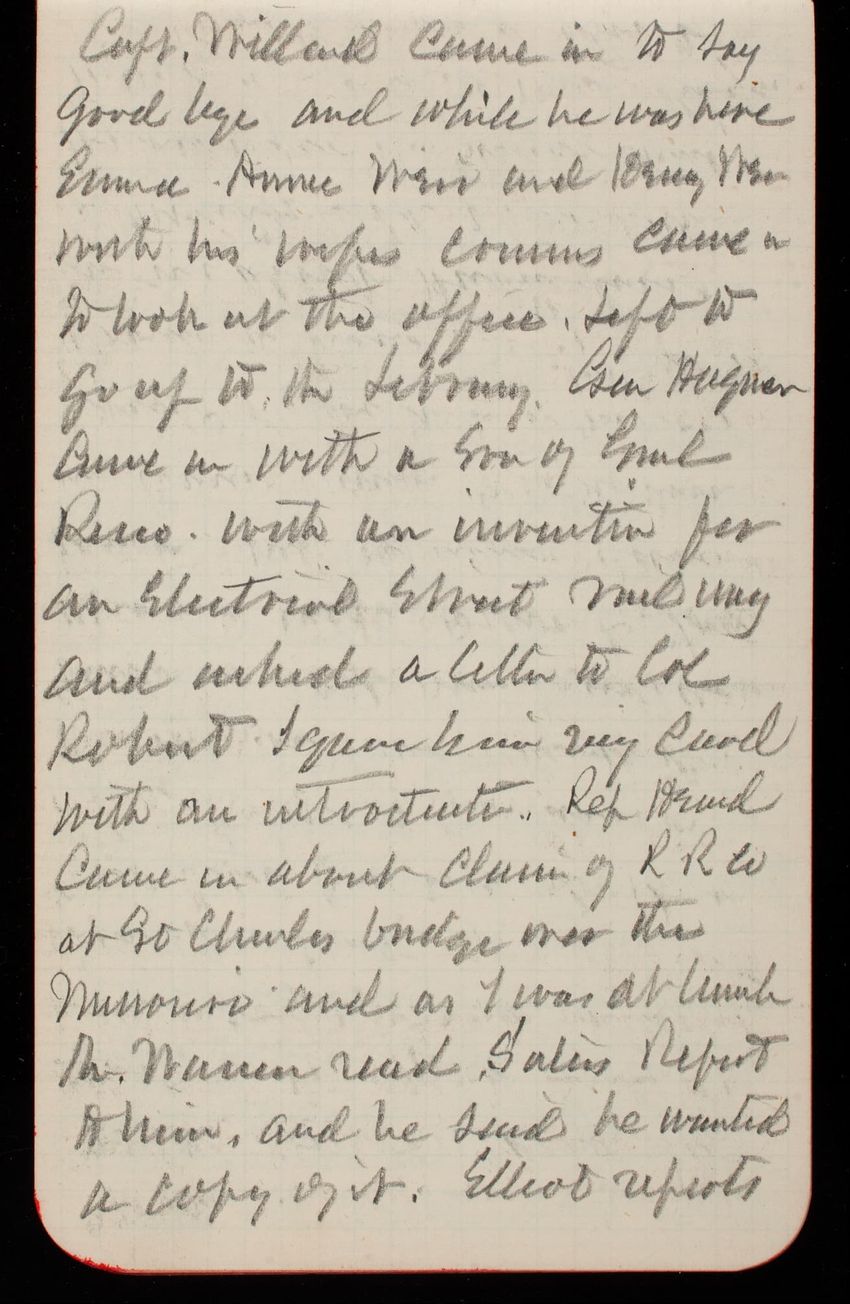 Capt. Willard came in to say
Good bye and while he was here
Emma Annie Weir and Henry Weir
with his wifes cousins came in
to look at the office. Left to
go up to the Library. Gen Hagner
came in with a Son of Genl
with an invention for
an Electrical Street railway
and asked a letter to Col
Robert I gave him my card
with an introduction. Rep Heard
Came in about claim of R R Co
at St Charles bridge over the
Missouri and as I was at lunch
Mr. Warren read Suters Report
to him, and he said he wanted
a copy of it. Elliot reports